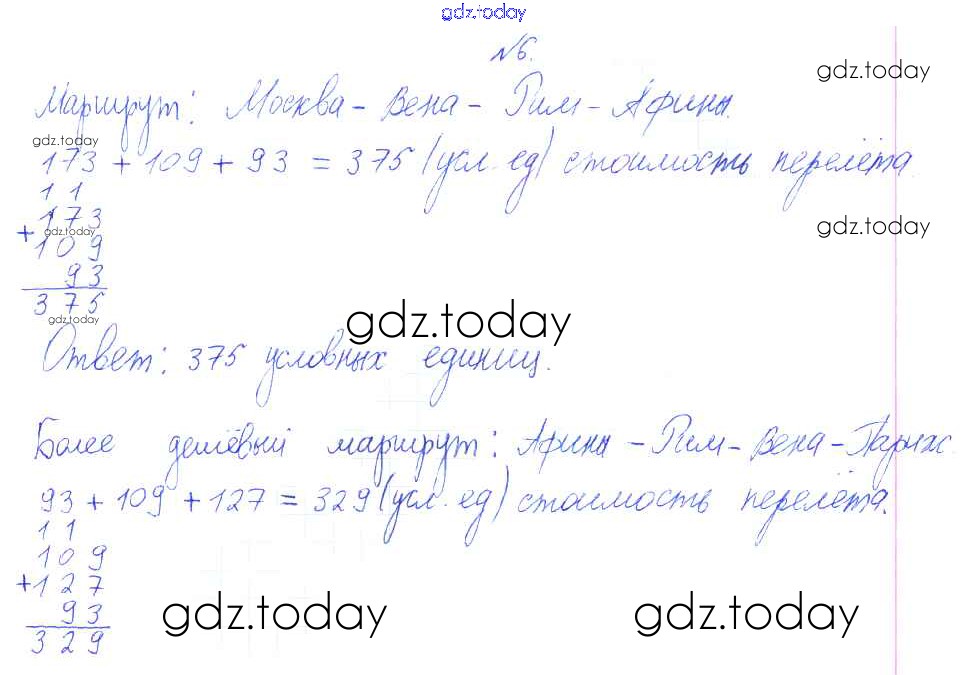 gdz.today
№6.
gdz.today
Маршрут: Москва - Вена - Рим - Афины.
gdz.today
173 + 109 + 93 = 375 (усл. ед) стоимость перелёта.
1 1
173
gdz.today
gdz.today
+ 109
93
375
gdz.today
gdz.today
Ответ: 375 условных единиц.
Более дешёвый маршрут: Афины - Рим - Вена -
93 + 109 + 127 = 329 (усл. ед) стоимость перелёта.
1 1
109
+ 127
93
329
gdz.today
gdz.today